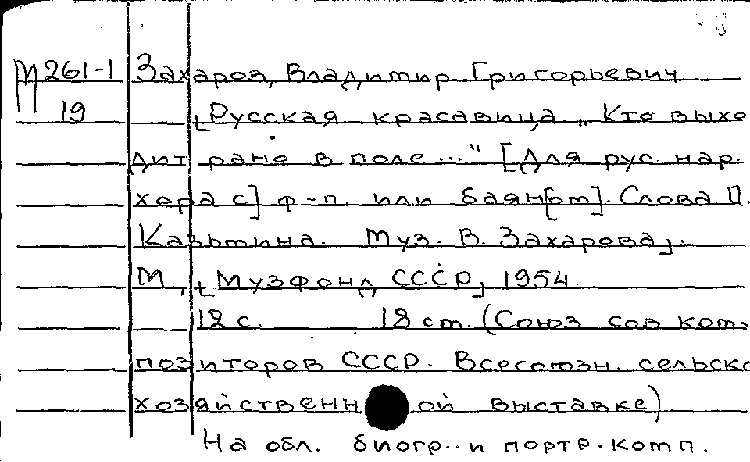 М261-1 Захаров, Владимир Григорьевич
19 [Русская красавица „Кто выхо
дит рано в поле..." [Для рус. нар.
хора с] ф-п. или баян[ом]. Слова П.
Казьмина. Муз. В. Захарова].
М., [Музфонд СССР], 1954
12 с. 18 ст. (Союз сов ком-
позиторов СССР. Всесоюзн. сельско
хозяйственной выставке)
На обл. биогр. и портр. комп.